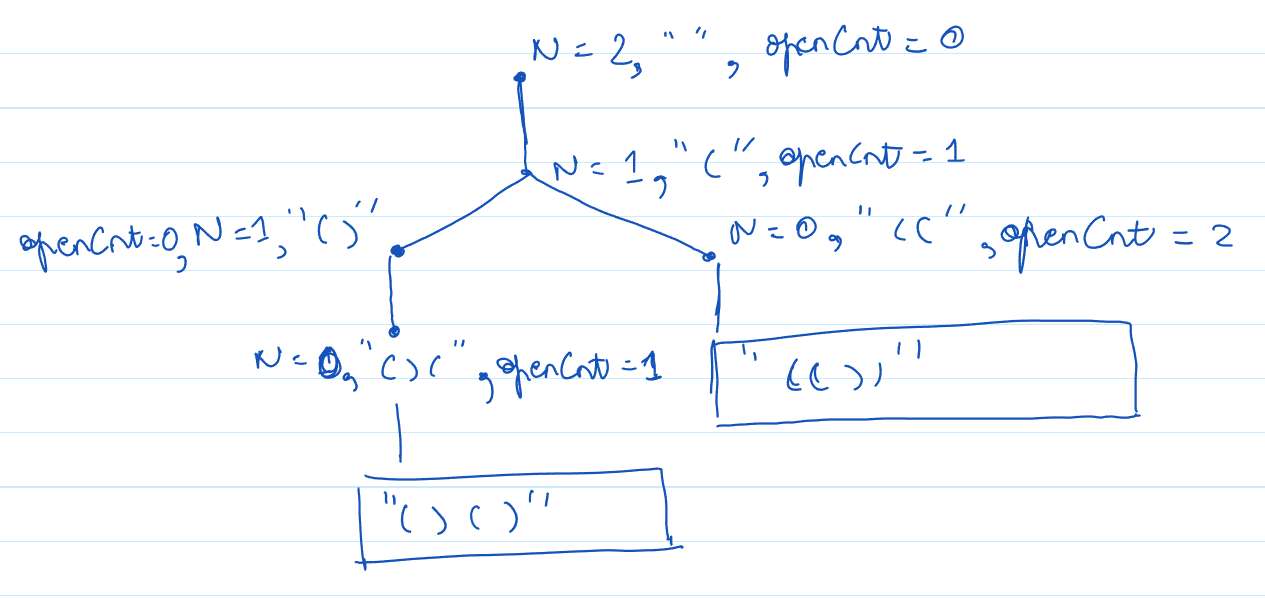 N = 2, " ", openCnt = 0
N = 1, "(", openCnt = 1
openCnt=0, N=1, "()"
N = 0, "((", openCnt = 2
N = 0, "()(", openCnt = 1
"(())"
"()()"